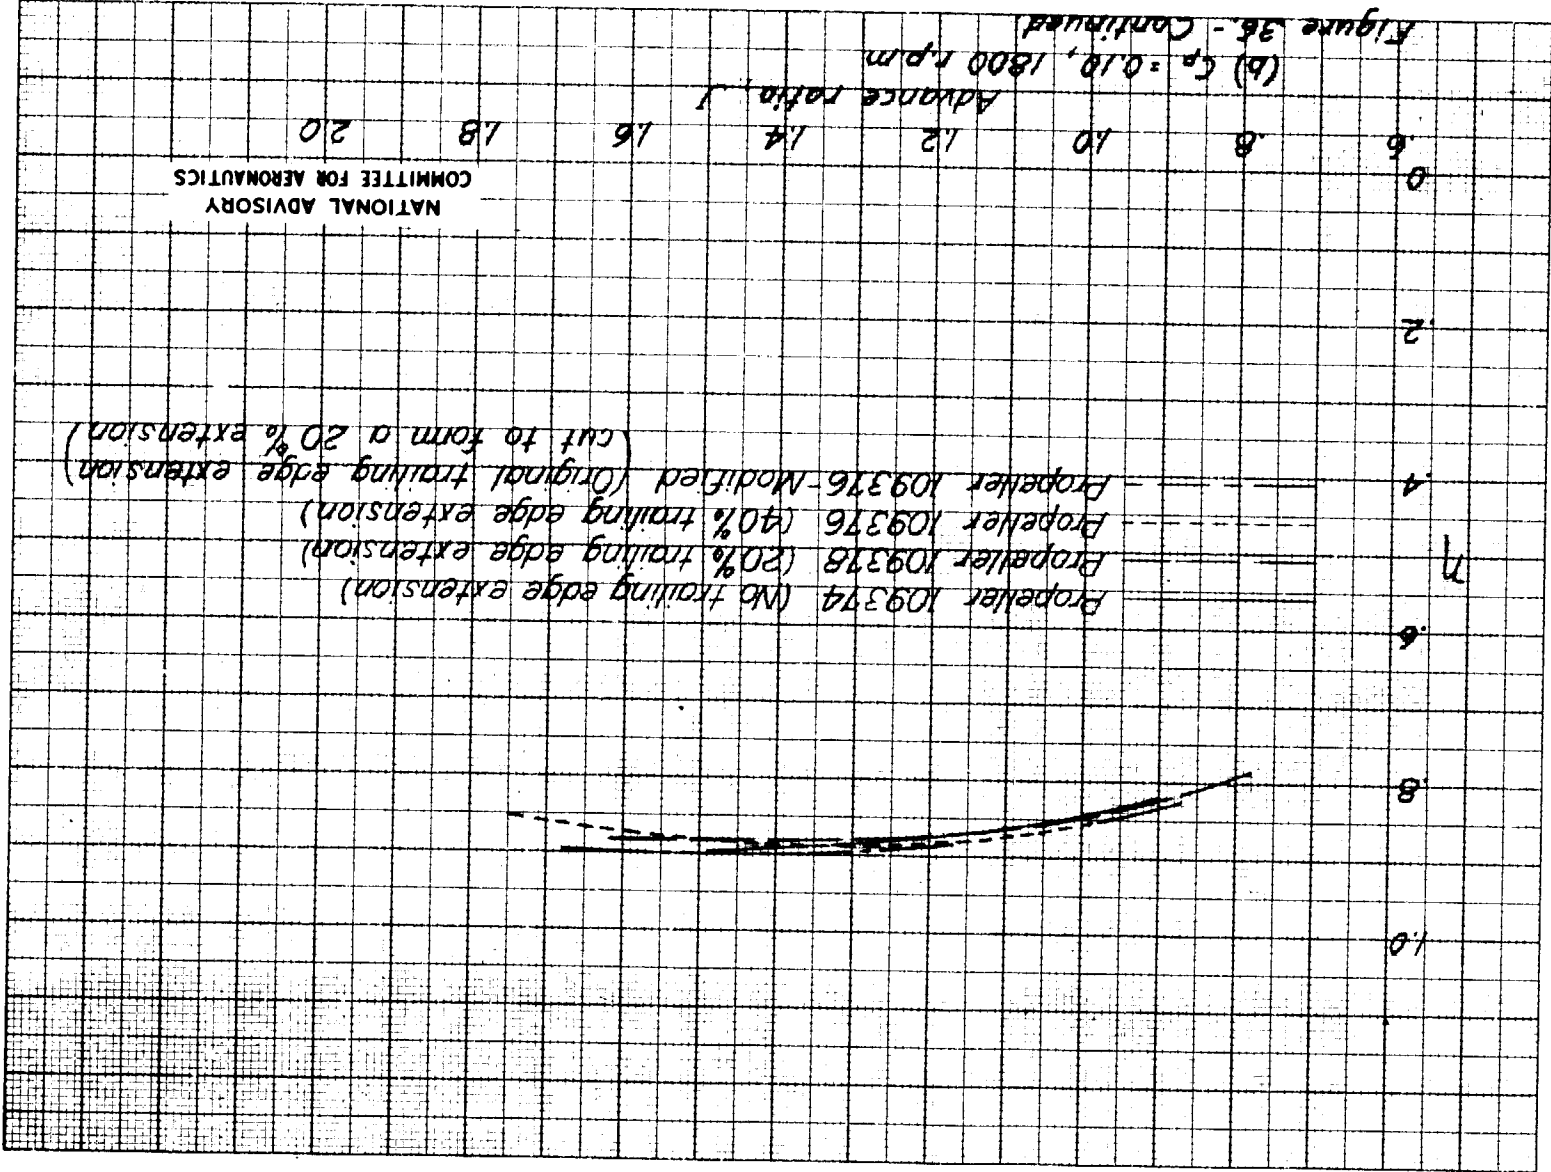 1.0
.8
.6
η
.4
.2
0
Propeller 109374 (No trailing edge extension)
Propeller 109378 (20% trailing edge extension)
Propeller 109376 (40% trailing edge extension)
Propeller 109376-Modified (Original trailing edge extension
cut to form a 20% extension)
NATIONAL ADVISORY
COMMITTEE FOR AERONAUTICS
.6 .8 1.0 1.2 1.4 1.6 1.8 2.0
Advance ratio, J
(b) Cp = 0.10, 1800 r.p.m
Figure 36.- Continued